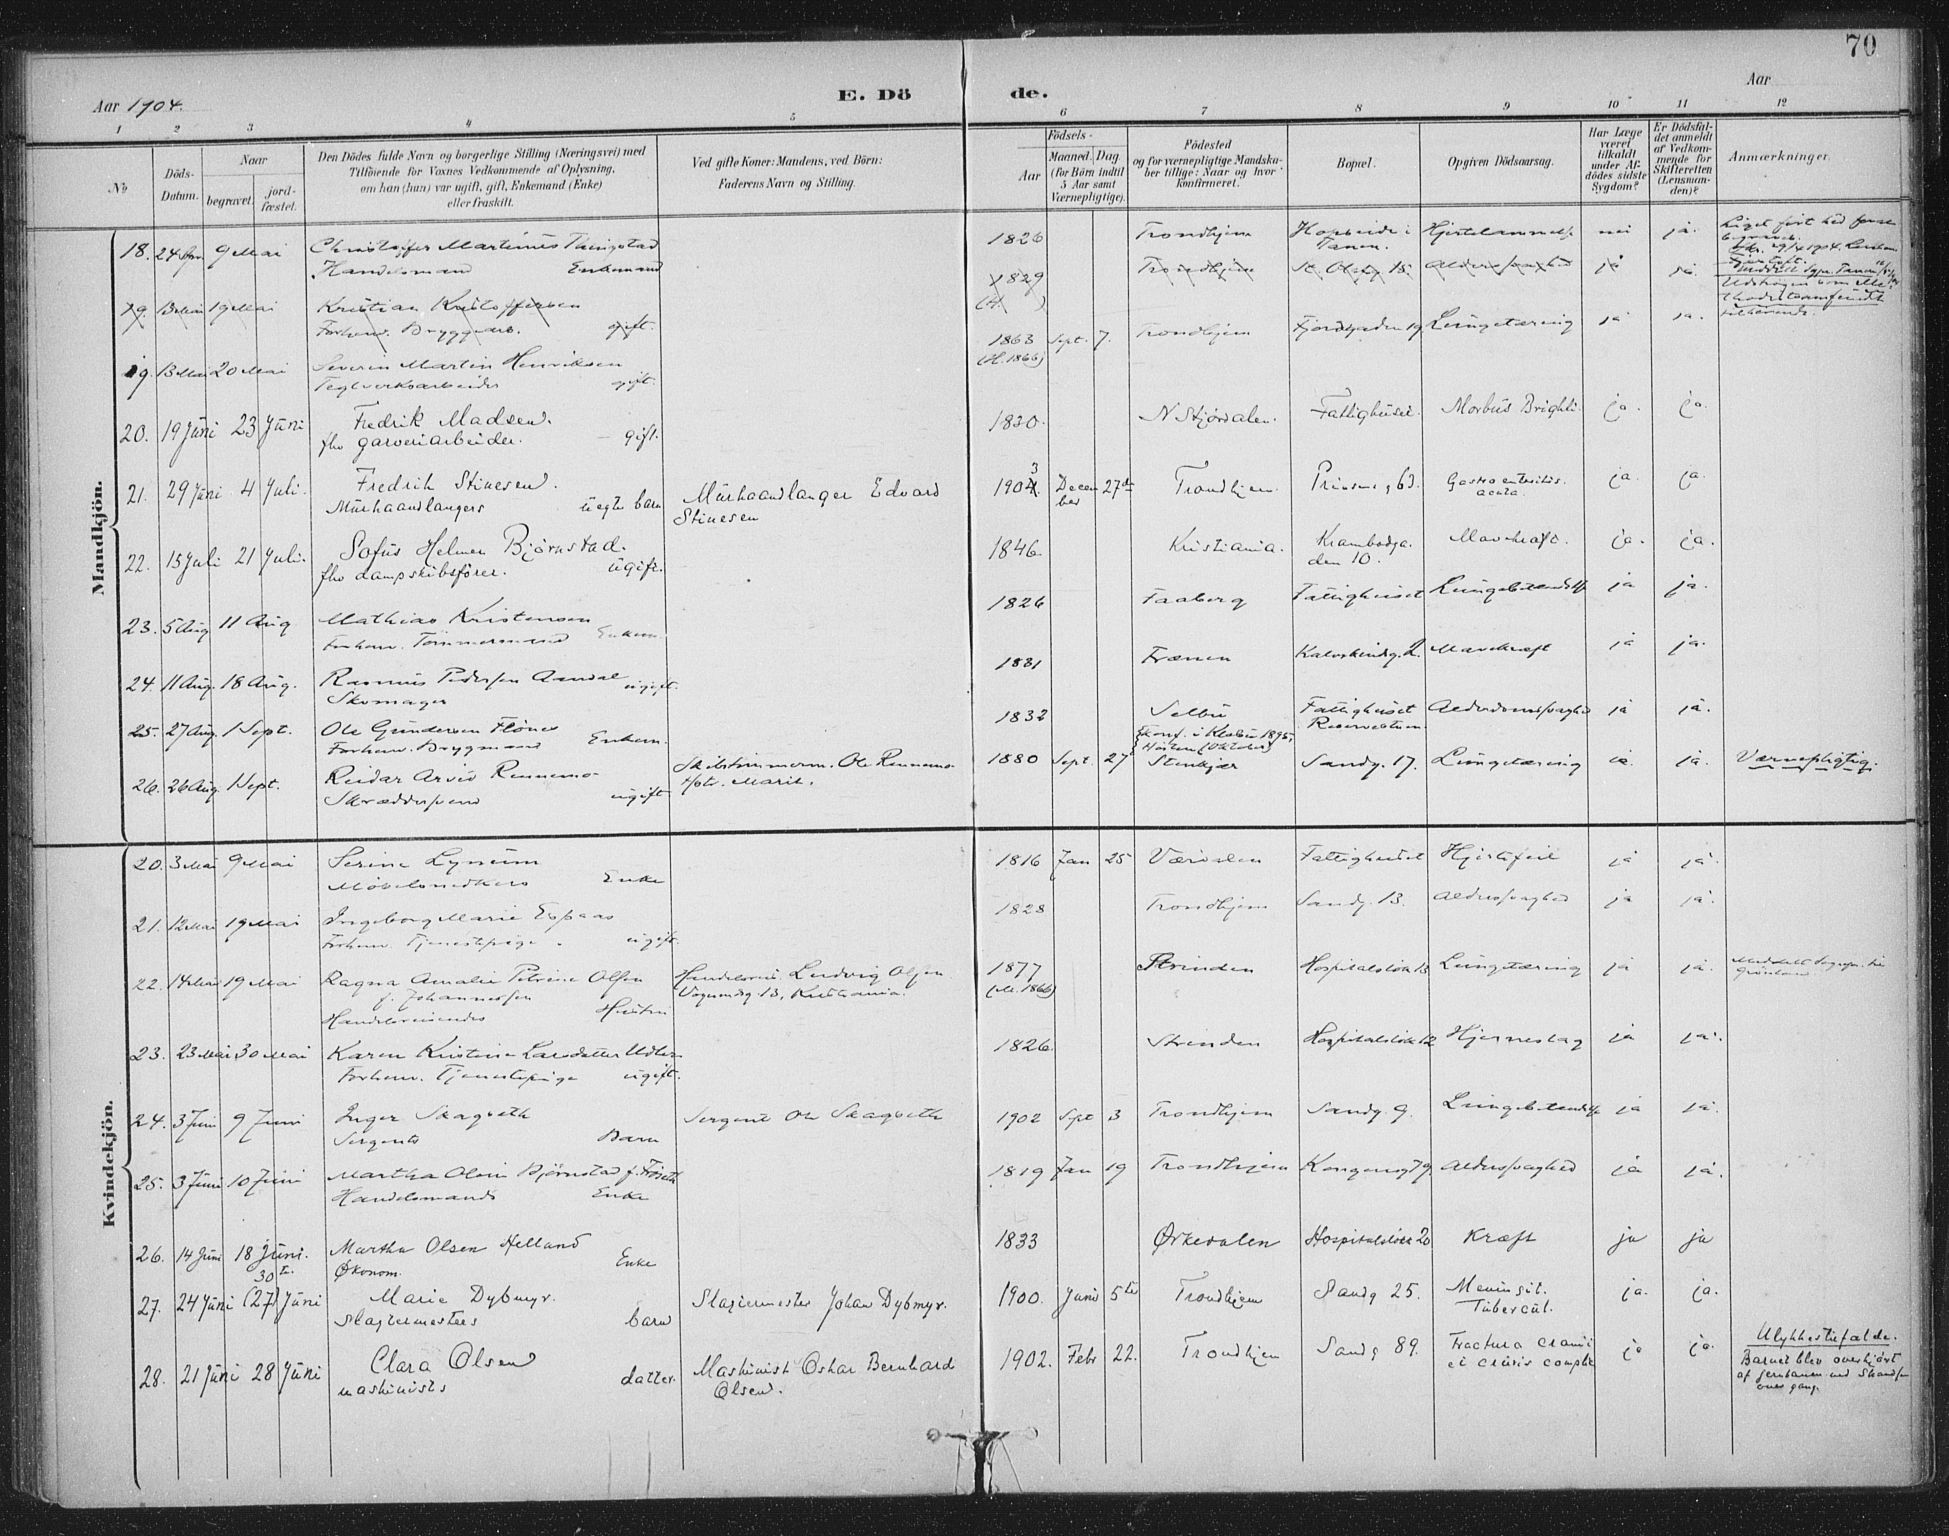 70
Aar 1904.
E. Dö de.
Aar
1 2 3 4 5 6 7 8 9 10 11 12
No
Döds-Datum.
Naar
begravet.
jord-fæstet.
Den Dödes fulde Navn og borgerlige Stilling (Næringsvei) med
Tilföiende for Voxnes Vedkommende af Oplysning,
om han (hun) var ugift, gift, Enkemand (Enke)
eller fraskilt.
Ved gifte Koner: Mandens, ved Börn:
Faderens Navn og Stilling.
Födsels-
Aar
Maaned. Dag
(for Börn indtil
5 Aar samt
Værnepligtige).
Födested
og for værnepligtige Mandska-
ber tillige: Naar og hvor
konfirmeret.
Bopæl.
Opgiven Dödsaarsag.
Har Læge
været
tilkaldt
under Af-
dödes sidste
Sygdom?
Er Dödsfal-
det anmeldt
af Vedkom-
mende for
Skifteretten
(Lensman-
den)?
Anmærkninger.
Mandkjön.
18. 24 Apr. 9 Mai Christoffer Martinus 1826 Trondhjem Hopseide i Hjertelammelse nei ja.
Handelsmand Enkemand Tanen.
19. 13 Mai 19 Mai Kristian Kristoffersen 1829 Trondhjem St. Olafsg 15. Alderssvaghed ja ja.
Forhenv. Bryggearb. gift.
19. 13 Mai 20 Mai Severin Martin Henriksen 1863 Sept. 7. Trondhjem Fjordgaden 19 Lungetæring ja ja.
Teglverksarbeider gift. (H. 1866)
20. 19 Juni 23 Juni Fredrik Madsen. 1830. N Stjørdalen. Fattighuset. Morbus Brightii. ja. ja.
fhv garveriarbeider. - gift.
21. 29 Juni 4 Juli. Fredrik Stinesen. Murhaandlanger Edvard 1903 December 27de Trondhjem. Prinsensg 63. Gastroenteritis ja. ja.
Murhaandlangers uegte barn Stinesen acuta.
22. 15 Juli 21 Juli. Sofus Helmer Bjørnstad. 1846. Kristiania. Krambodga- Mavekræft. ja. ja.
fhv dampskibsfører. ugift. den 10.
23. 5 Aug 11 Aug Mathias Kristensen 1826 Faaberg Fattighuset Lungebetændelse ja ja.
Forhenv. Tømmermand Enkem.
24. 11 Aug. 18 Aug. Rasmus Pedersen Aandal 1831 Frænen Kalvskindsg. 2. Mavekræft ja ja.
Skomager ugift.
25. 27 Aug. 1 Sept. Ole Gundersen Flönes 1832 Selbu Fattighuset Alderdomssvaghed ja ja.
Forhenv. Bryggmand Enkem. Reservestuen
26. 26 Aug. 1 Sept. Reidar Arvid Rennemo Skibstømmerm. Ole Rennemo 1880 Sept. 27 Stenkjær Sandg. 17. Lungetæring ja ja. Værnepligtig.
Skræddersvend ugift Hstr. Marit. konf. i Klæbu 1895, Høsten (Oktober)
Kvindekjön.
20. 3 Mai 9 Mai Serine Lynum 1816 Jan 25 Værdalen Fattighuset Hjertefeil ja ja.
Møbelsnedkers Enke
21. 12 Mai 19 Mai Ingeborg Marie Espaas 1828 Trondhjem Sandg. 13. Alderssvaghed ja ja.
Forhenv. Tjenestepige. ugift.
22. 14 Mai 19 Mai Ragna Amalie Petrine Olsen Handelsreis. Ludvig Olsen 1877 Strinden Hospitalsløk 13 Lungetæring ja ja.
f. Johannessen Vognmdsg. 13, Kristiania. (M. 1866)
Handelsreisendes Hustru
23. 23 Mai 30 Mai Karen Kristine Larsdatter 1826. Strinden Hospitalsløk 12 Hjerneslag ja ja.
Forhenv. Tjenestepige ugift.
24. 3 Juni 9 Juni Inger Skagseth Sergent Ole Skagseth 1902 Sept 3 Trondhjem Sandg. 9. Lungebetændelse ja ja.
Sergents Barn
25. 3 Juni 10 Juni Martha Oline Bjørnstad f. 1819 Jan 19 Trondhjem Kongensg 79. Alderssvaghed ja ja.
Handelsmands Enke
26. 14 Juni 18 Juni. Martha Olsen Helland 1833 Ørkedalen Hospitalsløk 20 Kræft ja ja
Økonom. Enke
27. 24 Juni (27) 30te Juni Marie Dybmyr. Slagtermester Johan Dybmyr. 1900. Juni 5te Trondhjem Sandg 25. Meningit. ja. ja.
Slagtermesters barn Tubercul.
28. 21 Juni 28 Juni Clara Olsen Maskinist Oskar Bernhard 1902. Febr 22. Trondhjem Sandg 89. Fractura cranii ja ja. Ulykkestilfælde.
maskinists datter. Olsen. et cruris complic Barnet blev overkjørt
af jernbanen ved
overgang.